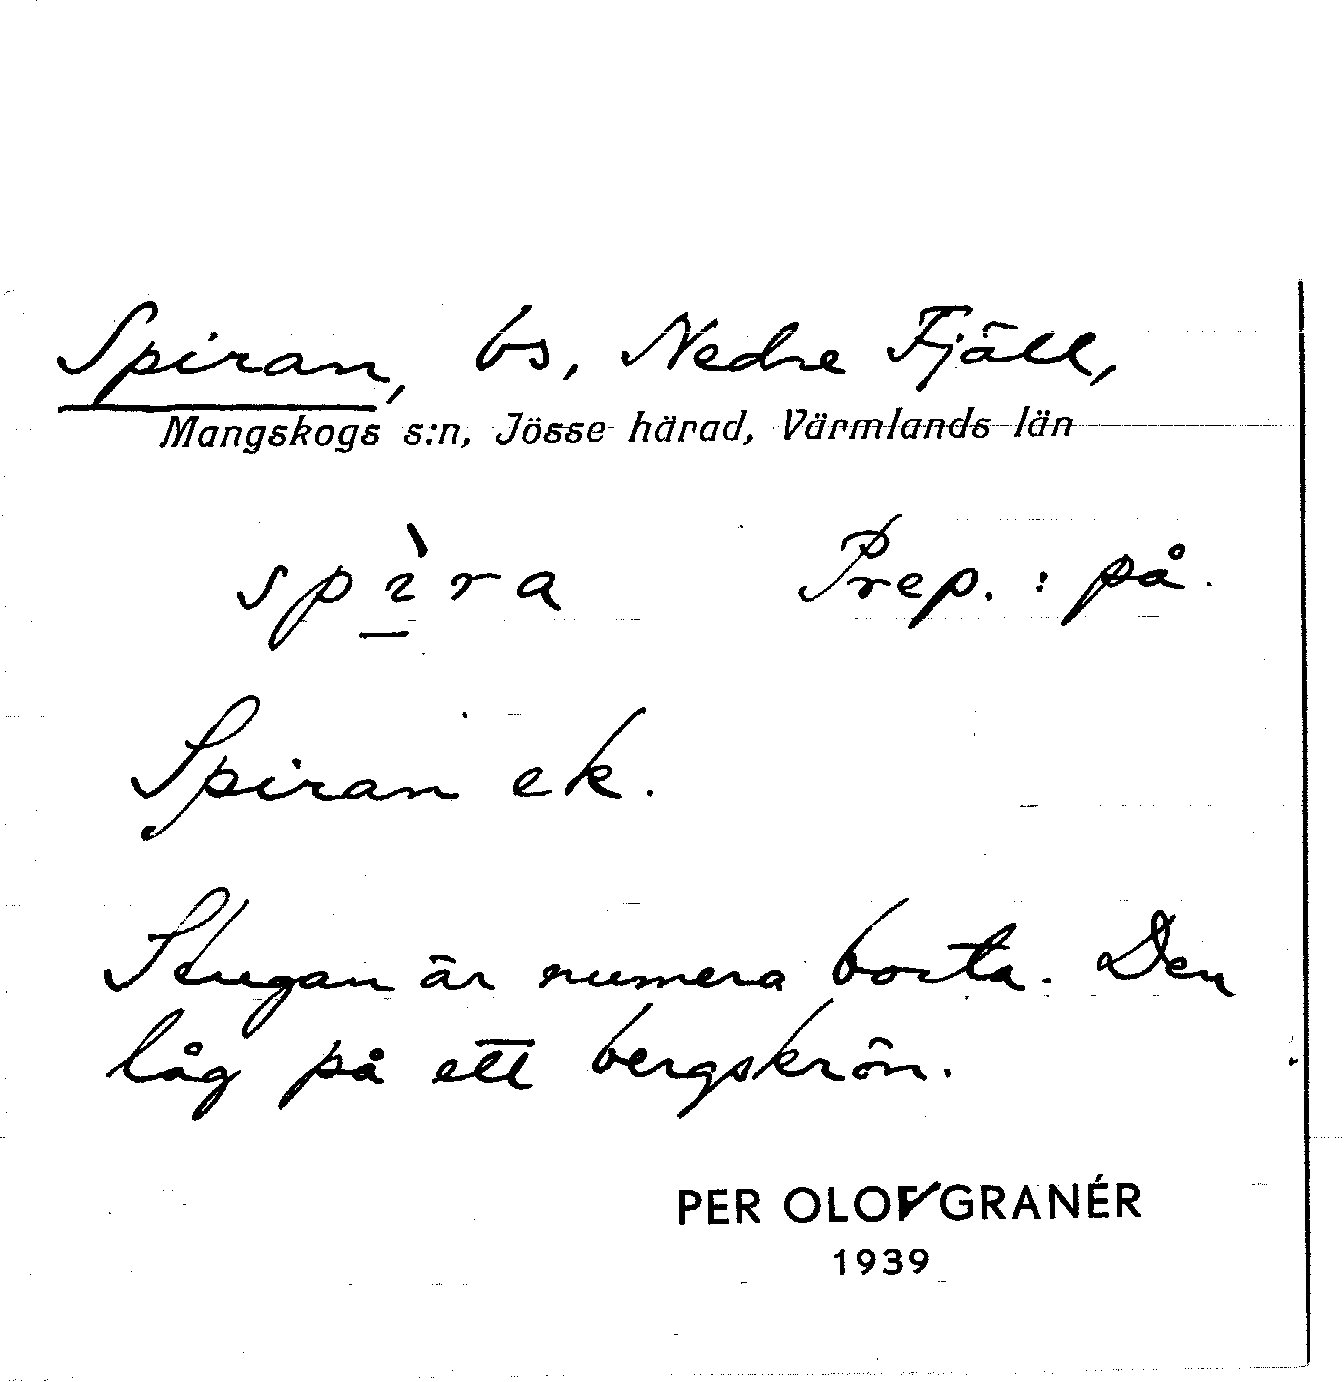 Spiran, bs, Nedre Fjäll,
Mangskogs s:n, Jösse härad, Värmlands län
spìra Prep. : på.
Spiran ek.
Stugan är numera borta. Den
låg på ett bergskrön.
PER OLOF GRANÉR
1939